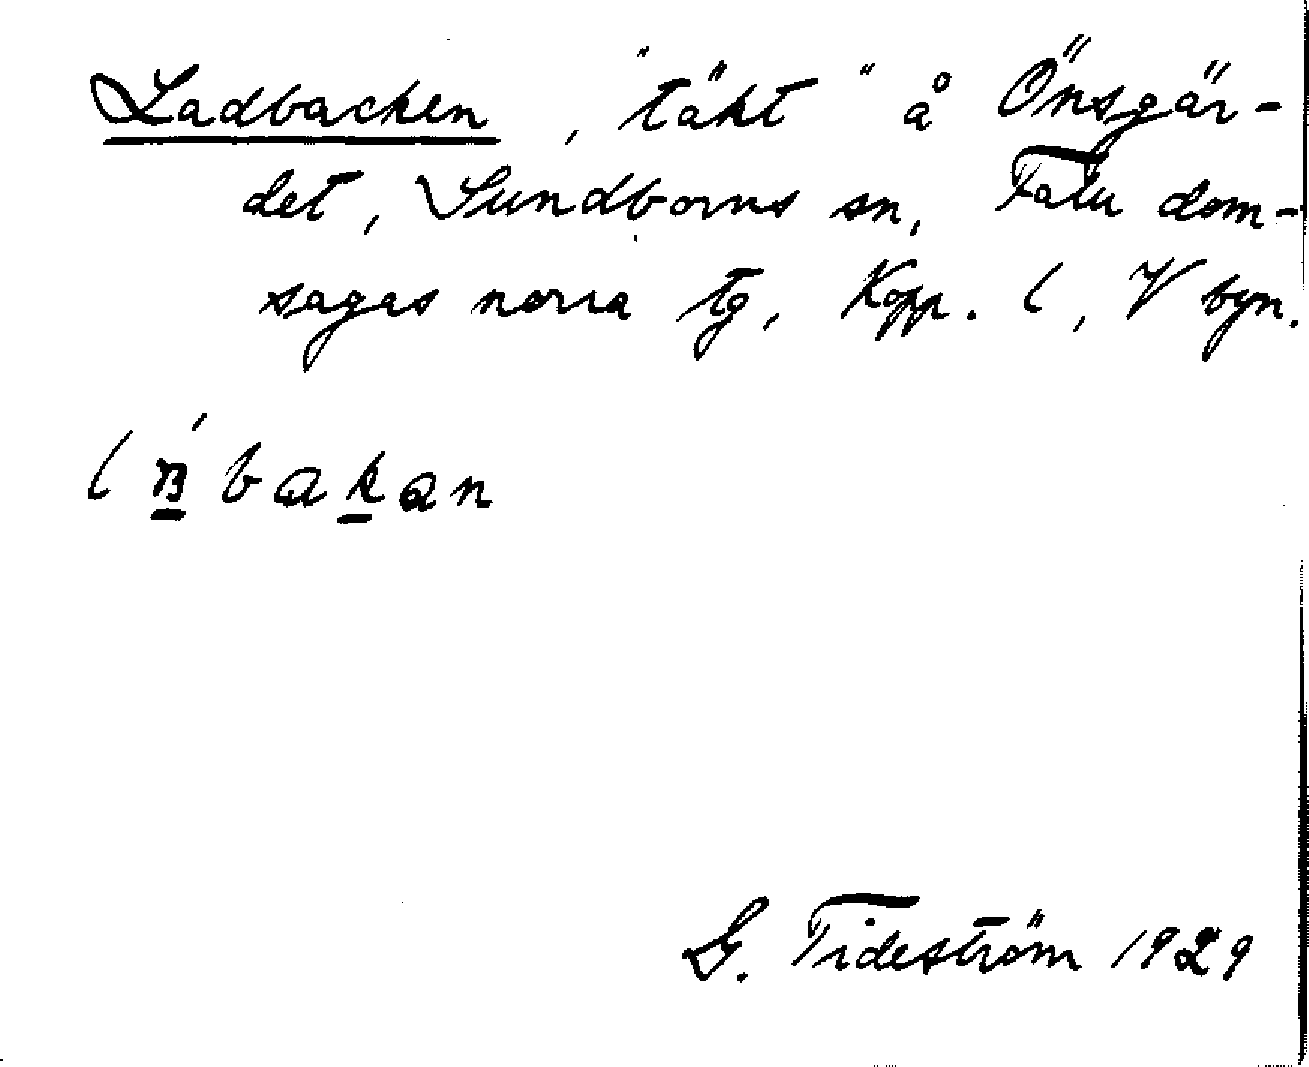 Ladbacken, "täkt" å Önsgär-
det, Sundborns sn, Falu dom-
sagas norra tg, Kopp. l, V byn.
bakan
G. Tideström 1929